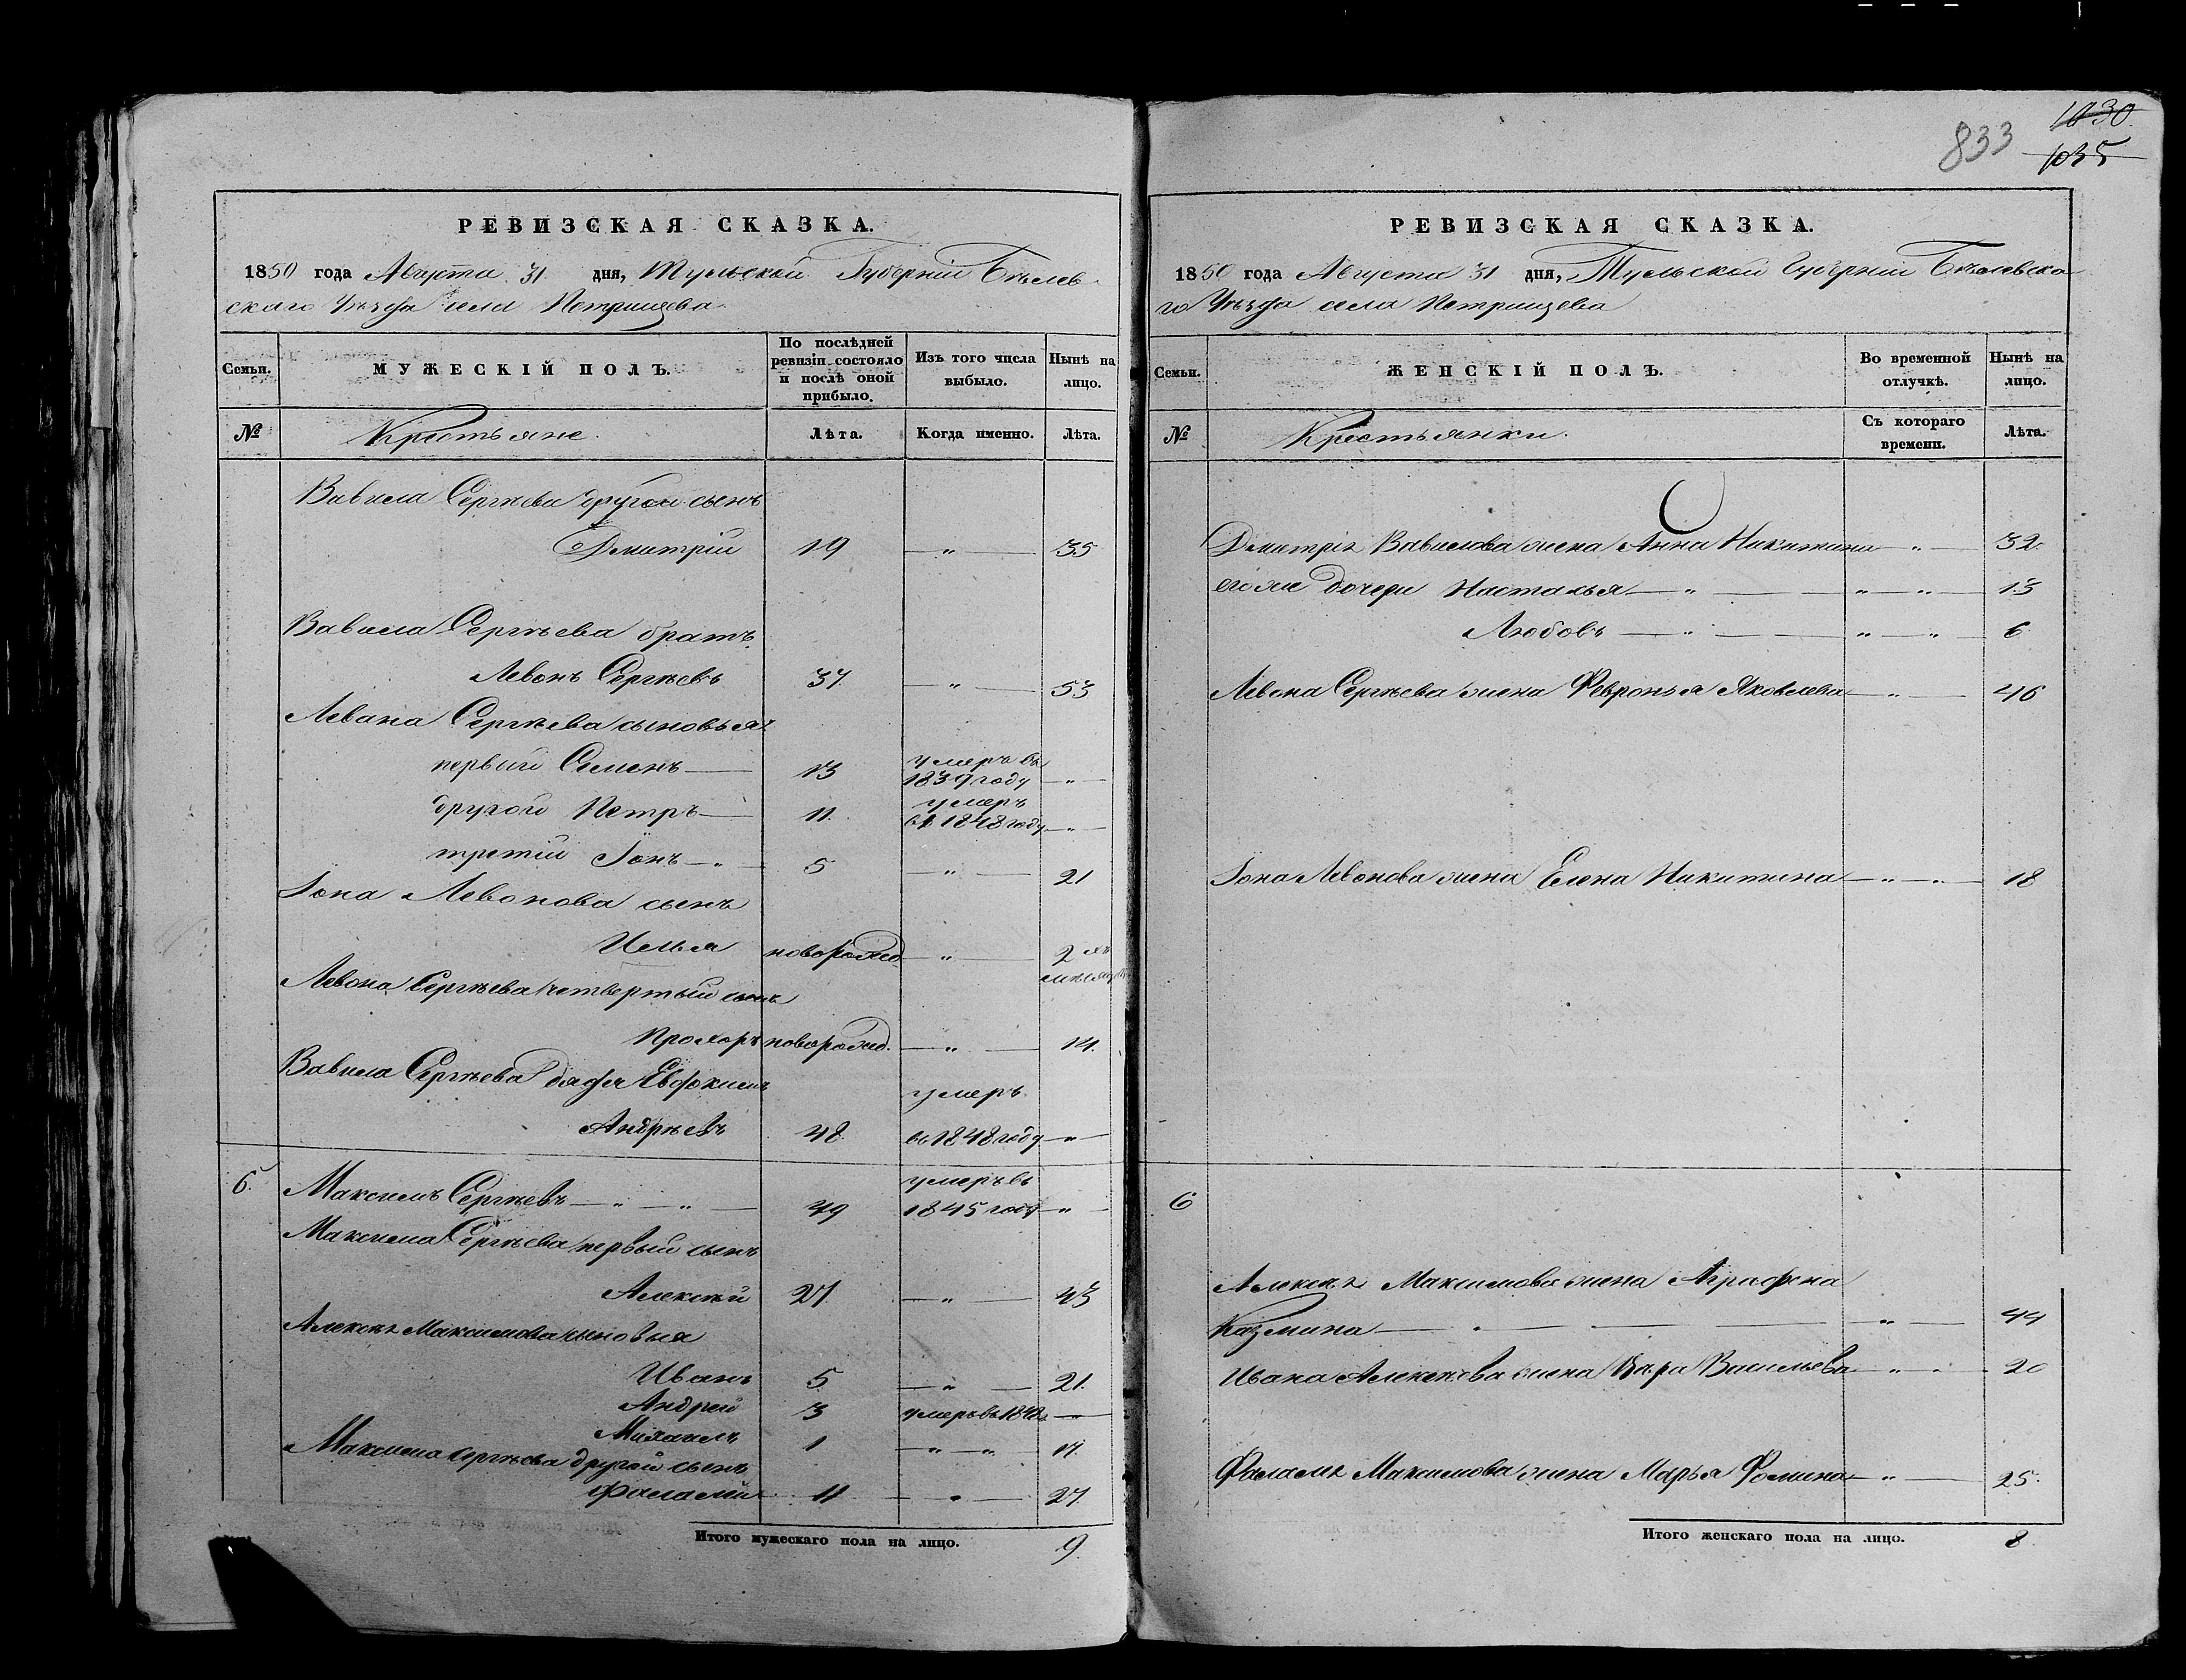 833
1030
1035
РЕВИЗСКАЯ СКАЗКА.
1850 года Августа 31 дня, Тульской Губерніи Бѣлев
скаго Уѣзда села Петрищева
Семьи.
МУЖЕСКІЙ ПОЛЪ.
По послѣдней ревизіи состояло и послѣ оной прибыло.
Изъ того числа выбыло.
Нынѣ на лицо.
№
Крестьяне.
Лѣта.
Когда именно.
Лѣта.
Вавила Сергѣева другой сынъ
Дмитрій 19 — „ — 35
Вавила Сергѣева братъ
Левонъ Сергѣевъ 37 — „ — 53
Левона Сергѣева сыновья
первый Семенъ — 13 умеръ въ 1839 году — „ —
другой Петръ — 11. умеръ въ 1848 году — „ —
третій Іонъ — „ — 5 — „ — 21
Іона Левонова сынъ
Илья новорожд. — „ — 2 хъ мѣсяц
Левона Сергѣева четвертый сынъ
Прохоръ новорожд. — „ — 14.
Вавила Сергѣева дядя Евдокимъ
Андрѣевъ 48 умеръ въ 1848 году — „ —
6. Максимъ Сергѣевъ — „ — „ — 49 умеръ въ 1845 году — „ —
Максима Сергѣева первый сынъ
Алексѣй 27. — „ — 43
Алексѣя Максимова сыновья
Иванъ 5 — „ — 21.
Андрей 3 умеръ въ 1848 —
Михаилъ 1 — „ — „ 17.
Максима Сергѣева другой сынъ
Фалалѣй 11 — „ — 27.
Итого мужескаго пола на лицо. 9.
РЕВИЗСКАЯ СКАЗКА.
1850 года Августа 31 дня, Тульской Губерніи Бѣлевска
го Уѣзда села Петрищева
Семьи.
ЖЕНСКІЙ ПОЛЪ.
Во временной отлучкѣ.
Нынѣ на лицо.
№
Крестьянки.
Съ котораго времени.
Лѣта.
Дмитрія Вавилова жена Анна Никитина — „ — 32.
его же дочери Насталья — „ — „ — „ — 13
Любовь — „ — „ — „ — 6
Левона Сергѣева жена Февронья Яковлева — „ — 46
Іона Левонова жена Елена Никитина — „ — „ — 18
6
Алексѣя Максимова жена Аграфена
Казмина — „ — 44
Ивана Алексѣева жена Вѣра Васильева — „ — 20
Фалалѣя Максимова жена Марья Фомина — „ — 25.
Итого женскаго пола на лицо. 8